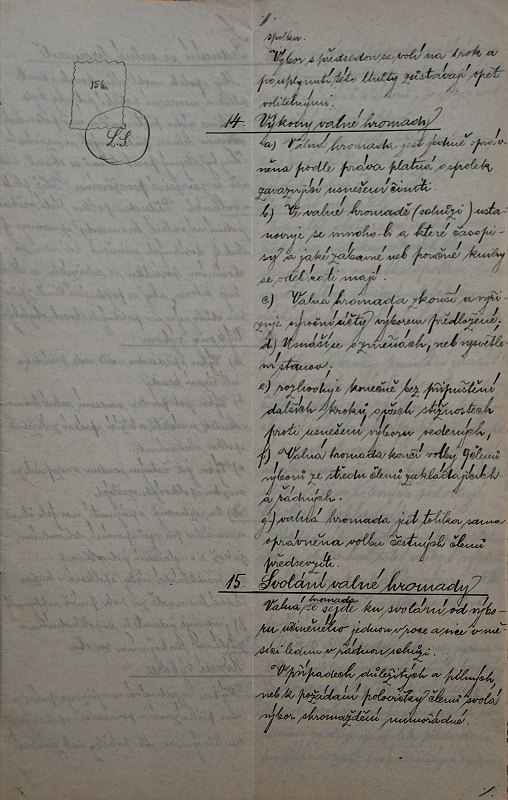 15 kr
L.S.
spolku.
Výbor s předsedou se volí na 1 rok a
po uplynutí této lhůty zůstávají opět
volitelnými.
14. Výkony valné hromady
a) Valná hromada jest jedině opráv-
něna podle práva platná a spolek
zavazující usnešení činiti.
b) Ve valné hromadě (schůzi) usta-
novuje se mnoho-li a které časopi-
sy a jaké zábavné neb poučné knihy
se odebírati mají.
c) Valná hromada zkouší a vyři-
zuje výroční účty výborem předložené;
d) Usnáší se o změnách, neb vysvětle-
ní stanov;
e) rozhoduje konečně bez připuštění
dalších kroků o všech stížnostech
proti usnešení výboru vedených,
f) Valná hromada koná volby 9 členů
výborů ze středu členů zakládajících
a řádných.
g) valná hromada jest toliko sama
oprávněna volbu čestných členů
předsevzíti.
15. Svolání valné hromady
Valná hromada se sejde ku svolání od výbo-
ru učiněného jednou v roce a sice v mě-
síci lednu v řádnou schůzi.
V případech důležitých a pilných,
neb k požádání polovičky členů svolá
výbor shromáždění mimořádné.